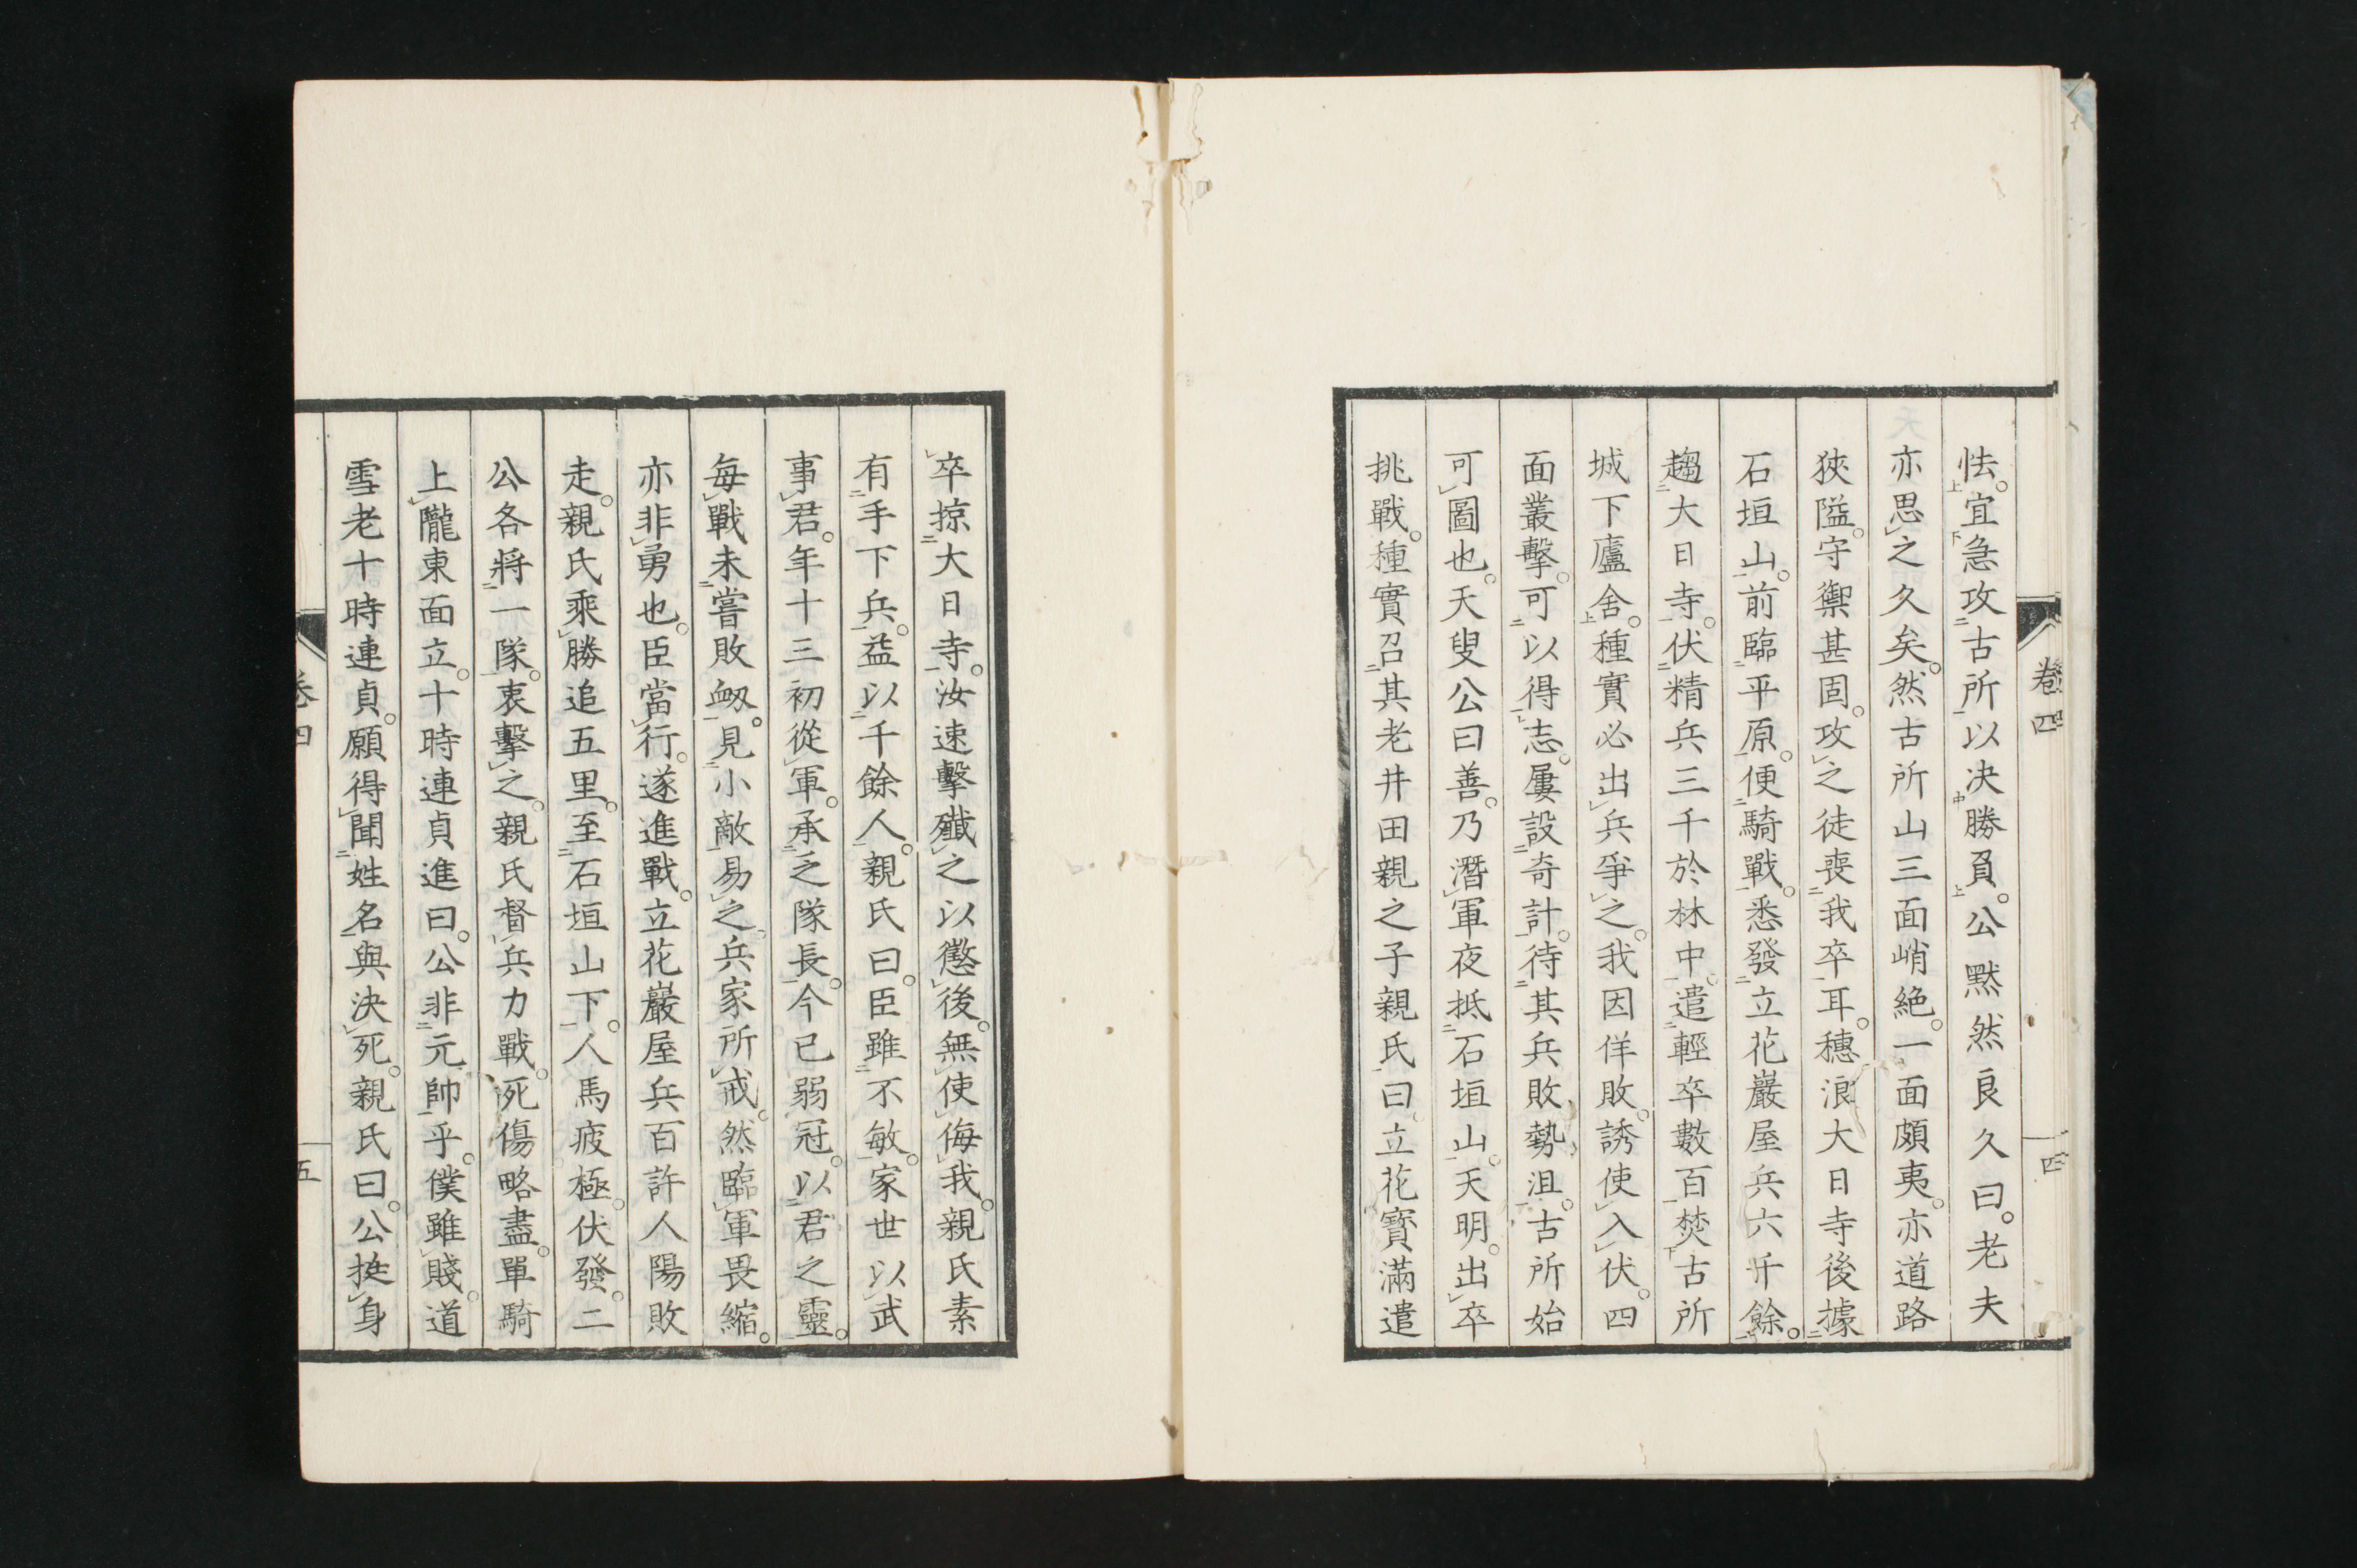 卷四
四
怯。宜急攻古所以决勝負。公默然良久曰。老夫
亦思之久矣。然古所山三面峭絶。一面頗夷。亦道路
狹隘。守禦甚固。攻之徒喪我卒耳。穗浪大日寺後據
石垣山。前臨平原。便騎戰。悉發立花巖屋兵六千餘。
趨大日寺。伏精兵三千於林中。遣輕卒數百焚古所
城下廬舍。種實必出兵爭之。我因佯敗。誘使入伏。四
面叢擊。可以得志。屢設奇計。待其兵敗勢沮。古所始
可圖也。天叟公曰善。乃潛軍夜抵石垣山。天明。出卒
挑戰。種實召其老井田親之子親氏曰。立花寳滿遣
卒掠大日寺。汝速擊殲之以懲後。無使侮我。親氏素
有手下兵。益以千餘人。親氏曰。臣雖不敏。家世以武
事君。年十三初從軍。承乏隊長。今已弱冠。以君之靈。
每戰未嘗敗衂。見小敵易之。兵家所戒。然臨軍畏縮。
亦非勇也。臣當行。遂進戰。立花巖屋兵百許人陽敗
走。親氏乘勝追五里。至石垣山下。人馬疲極。伏發。二
公各將一隊。夾擊之。親氏督兵力戰。死傷略盡。單騎
上隴東面立。十時連貞進曰。公非元帥乎。僕雖賤。道
雪老十時連貞。願得聞姓名與決死。親氏曰。公挺身
卷四
五